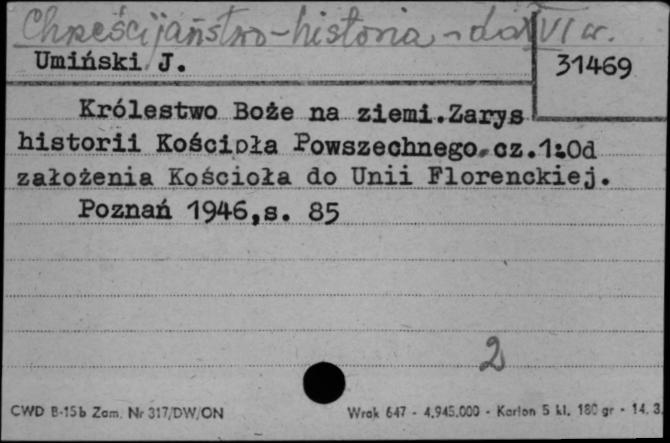 Chrześcijaństwo - historia - do XVI w.
Umiński J.
31469
Królestwo Boże na ziemi.Zarys
historii Kościoła Powszechnego.cz.1:Od
założenia Kościoła do Unii Florenckiej.
Poznań 1946,s. 85
2
CWD B-15b Zam. Nr 317/DW/ON Wrak 647 - 4.945.000 - Karton 5 kl. 180 gr - 14. 3.